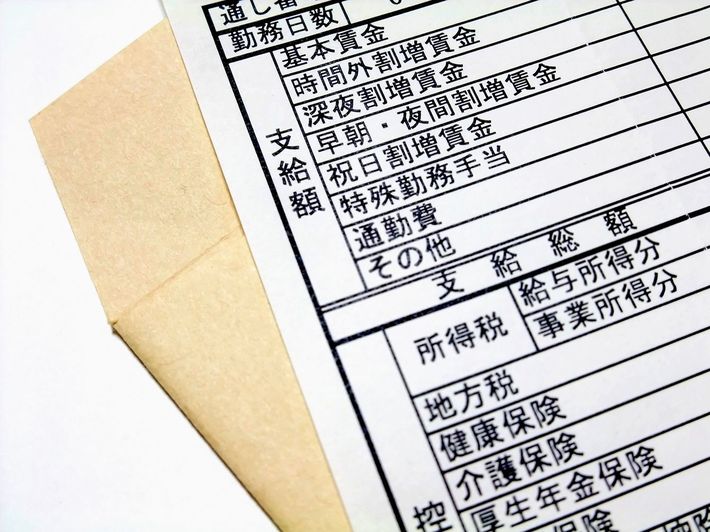 通し番
勤務日数
支給額
基本賃金
時間外割増賃金
深夜割増賃金
早朝・夜間割増賃金
祝日割増賃金
特殊勤務手当
通勤費
その他
支給総額
所得税
給与所得分
事業所得分
控
地方税
健康保険
介護保険
厚生年金保険